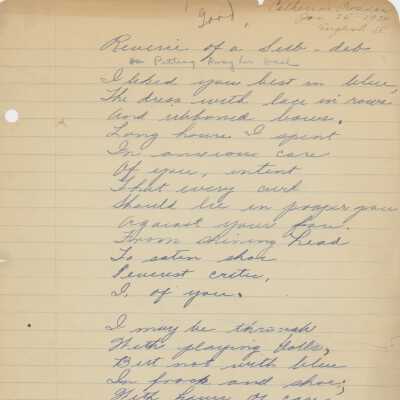 Good,
Catherine
Jan. 15 - 19
English
Reverie of a Sub-deb
on Putting Away her Doll
I liked you best in blue,
The dress with lace in rows
And ribboned bows.
Long hours I spent
In anxious care
Of you, intent
That every curl
Should lie in proper
Against your
From shining head
To satin shoe
Severest critic,
I, of you.
I may be through
With playing dolls,
But not with blue
In frock and shoe;
With hours of care